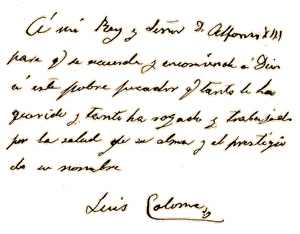 Á mi Rey y Señor D. Alfonso XIII
para q̃ se acuerde y encomiende á Dios
á este pobre pecador q̃ tanto le ha
querido y tanto ha rogado y trabajado
por la salud de su alma y el prestigio
de su nombre
Luis Coloma